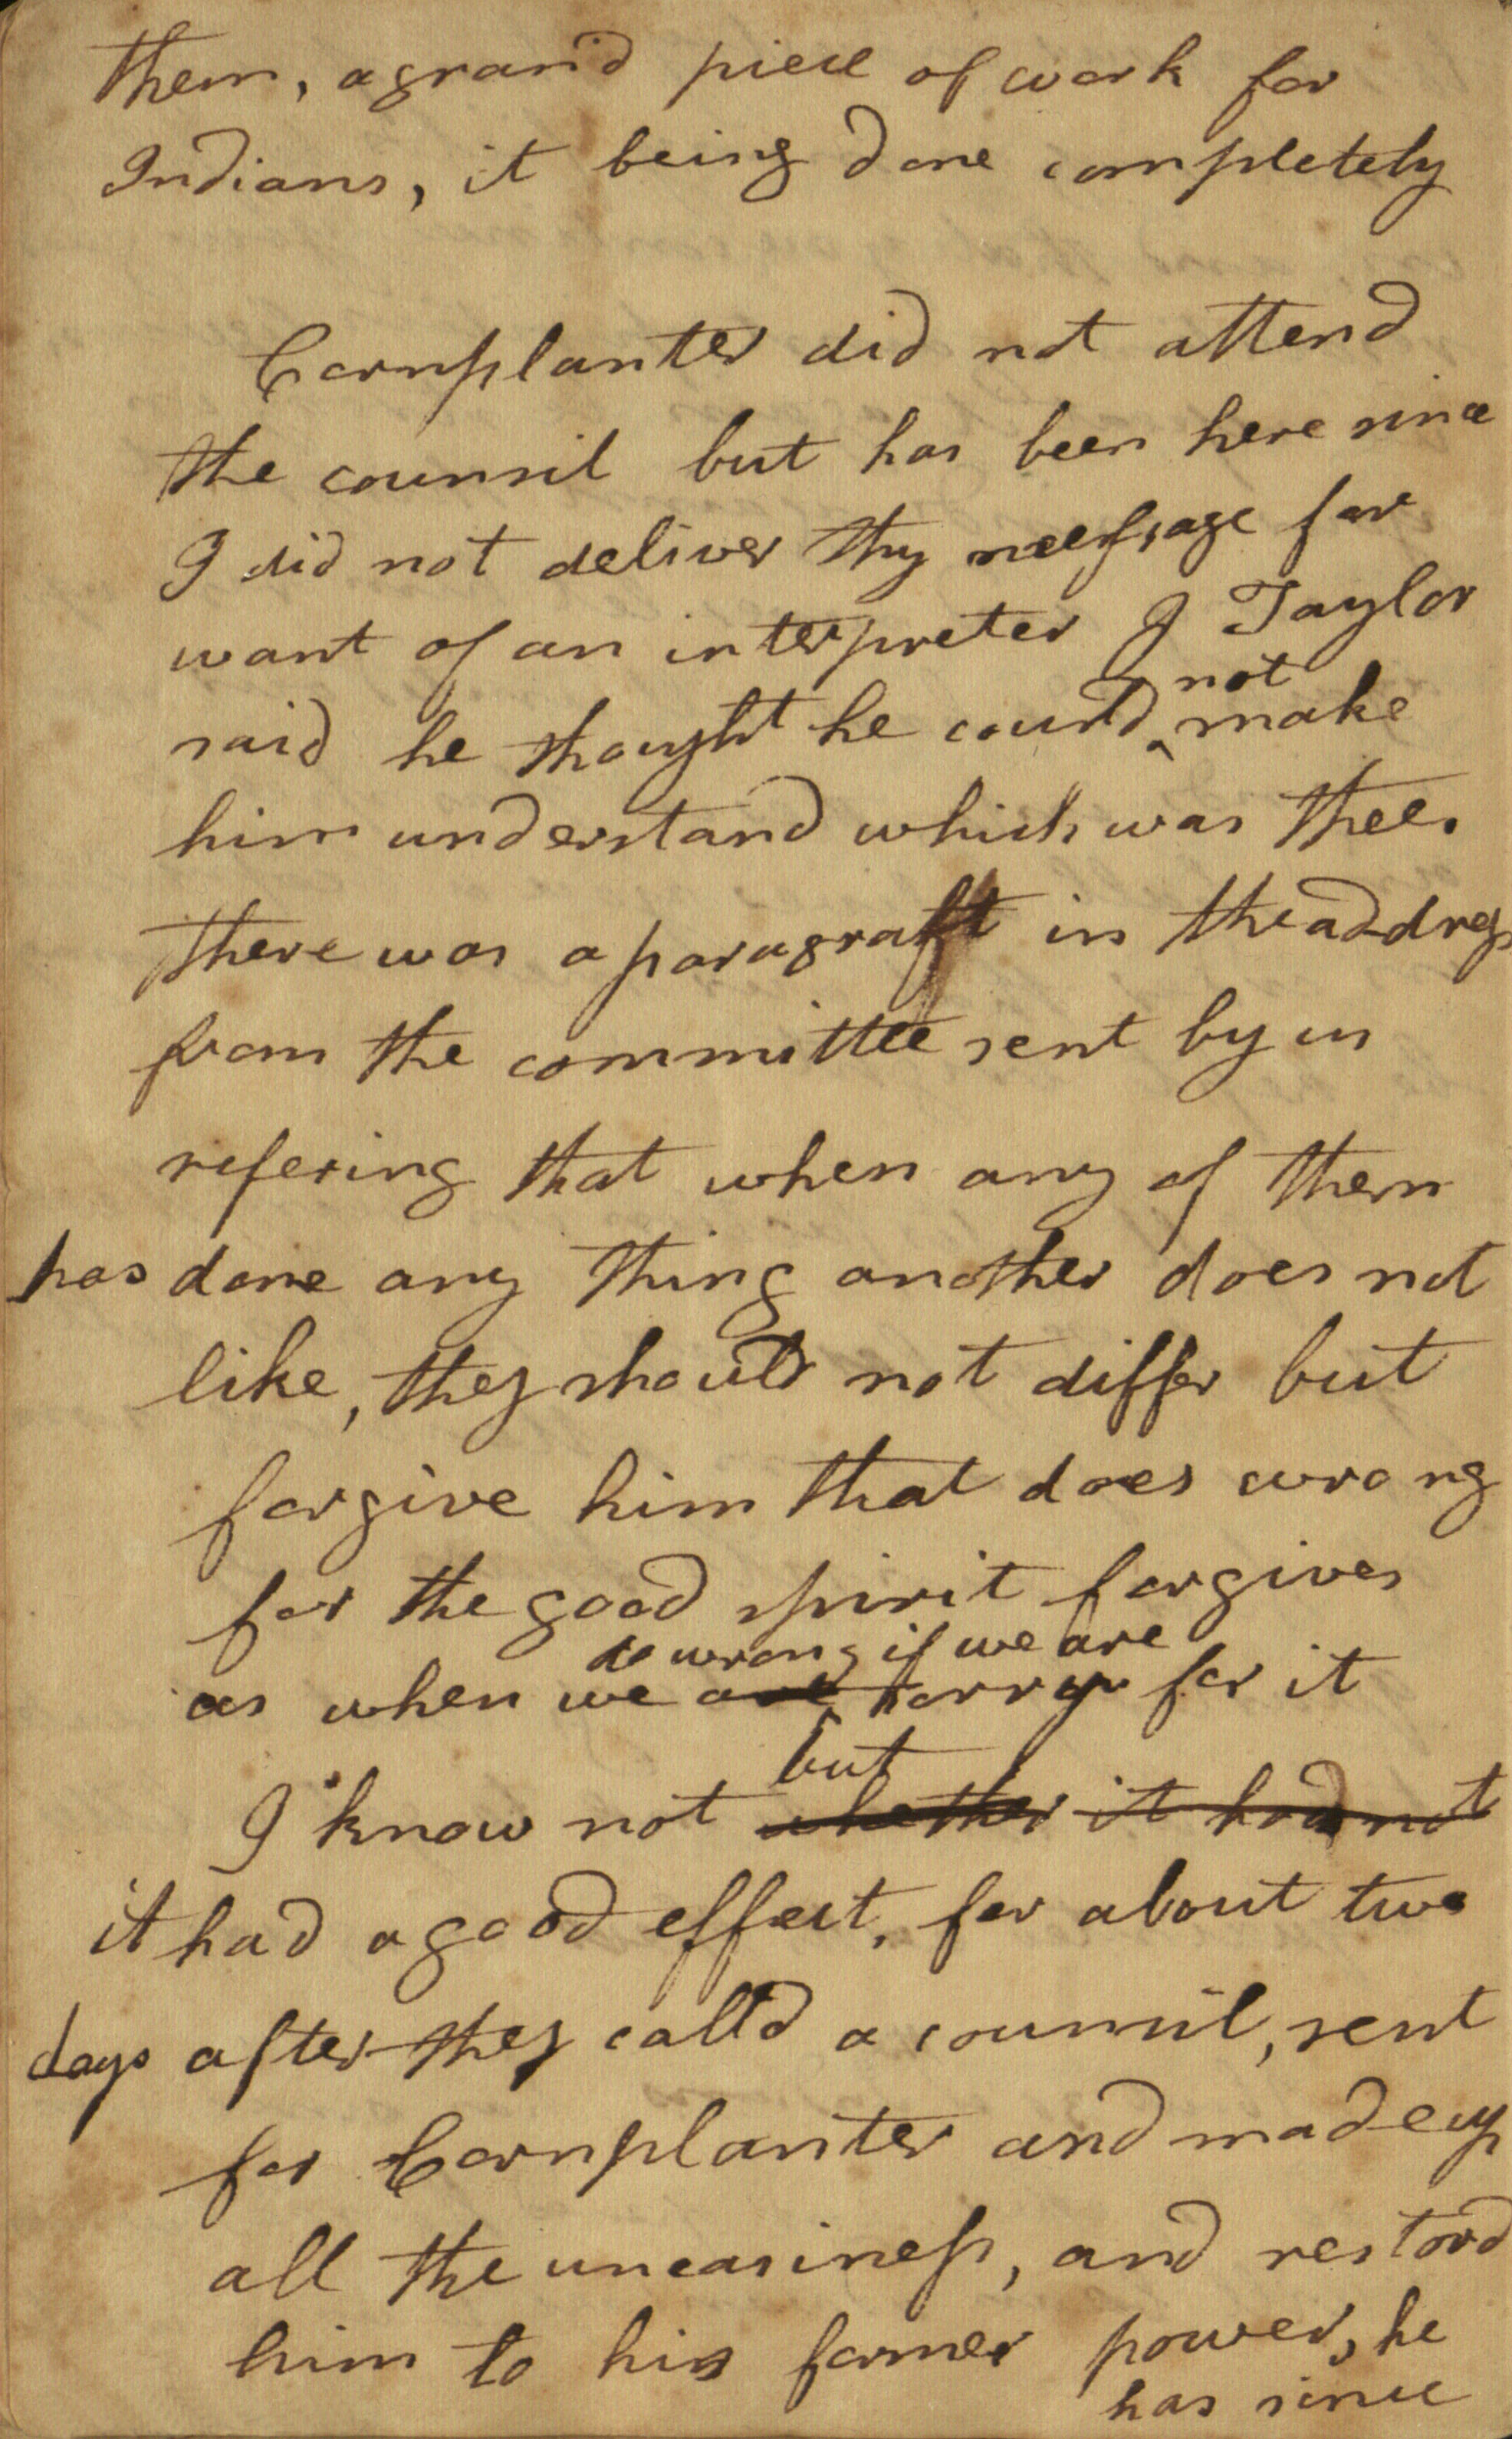 them, a grand piece of work for
Indians, it being done completely
Cornplanter did not attend
the councsil but has been here since
I did not deliver thy message for
want of an interpreter J Taylor
not
said he thought he could ^ make
him understand which was thee.
there was a paragraft in the address
from the committee sent by us
refering that when any of them
has done any thing another does not
like, they should not differ but
forgive him that does wrong
for the good spirit forgives
do wrong if we are
as when we are ^ sorry for it
but
I know not whether it had not
it had a good effect, for about two
days after they call'd a council, sent
for Cornplanter and made up
all the uneasiness, and restord
him to his former power, he
has since